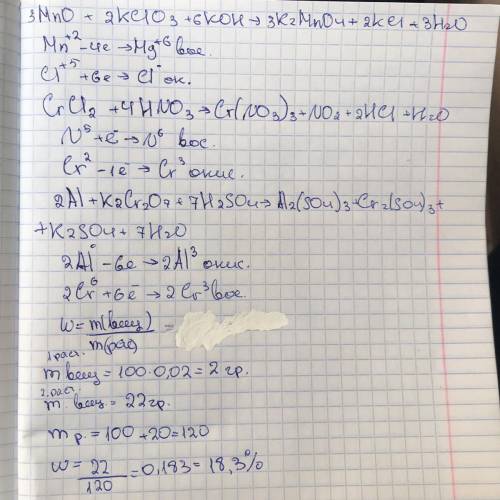 3MnO + 2KClO3 + 6KOH → 3K2MnO4 + 2KCl + 3H2O
Mn+2 - 4e → Mg+6 вос.
Cl+5 + 6e → Cl- ок.
CrCl2 + 4HNO3 → Cr(NO3)3 + NO2 + 2HCl + H2O
N5 + e- → N6 вос.
Cr2 - 1e- → Cr3 окис.
2Al + K2Cr2O7 + 7H2SO4 → Al2(SO4)3 + Cr2(SO4)3 +
+ K2SO4 + 7H2O
2Al0 - 6e → 2Al3 окис.
2Cr6 + 6e- → 2Cr3 вос.
w = m(вещ)/m(рас) =
1 раст.
m вещ = 100 · 0,02 = 2 гр.
2 раст.
m вещ = 22 гр.
m р. = 100 + 20 = 120
w = 22/120 = 0,183 = 18,3%